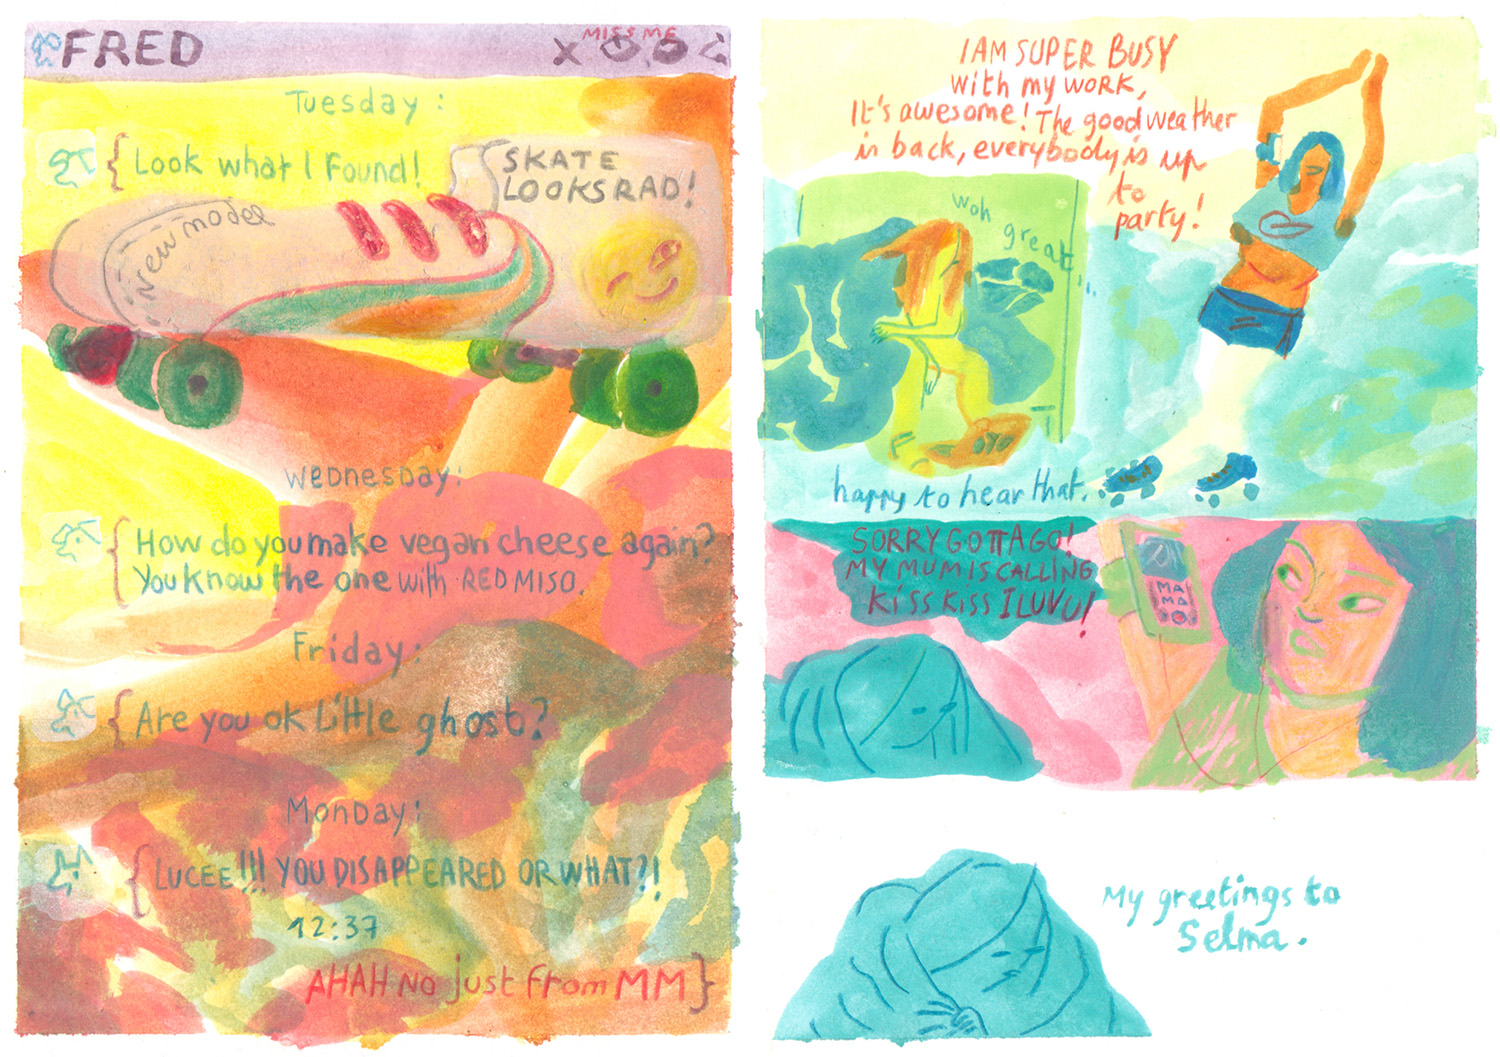 FRED
MISS ME
Tuesday:
Look what I Found!
SKATE
LOOKS RAD!
New model
Wednesday:
How do you make vegan cheese again?
You know the one with RED MISO.
Friday:
Are you ok Little ghost?
Monday:
LUCEE!!! YOU DISAPPEARED OR WHAT?!
12:37
AHAH No just from MM
I AM SUPER BUSY
with my work,
It's awesome! The good weather
is back, everybody is up
to
party!
woh
great...
happy to hear that.
SORRY GOTTA GO!
MY MUM IS CALLING
Kiss Kiss I LUV U!
MA
MA
My greetings to
Selma.